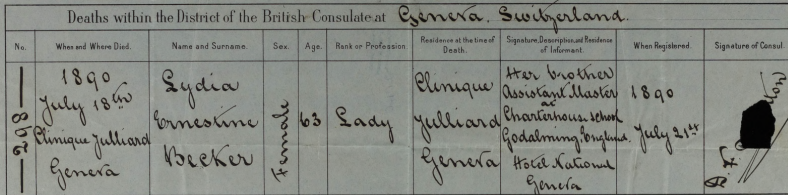 Deaths within the District of the British Consulate at Geneva. Switzerland.
No. When and Where Died. Name and Surname. Sex. Age. Rank or Profession. Residence at the time of Death. Signature, Description, and Residence of Informant. When Registered. Signature of Consul.
298
1890
July 18th
Clinique Julliard
Geneva
Lydia
Ernestine
Becker
Female
63
Lady
Clinique
Julliard
Geneva
Her brother
Assistant Master
at
Charterhouse School
Godalming England.
Hotel National
Geneva
1890
July 21st